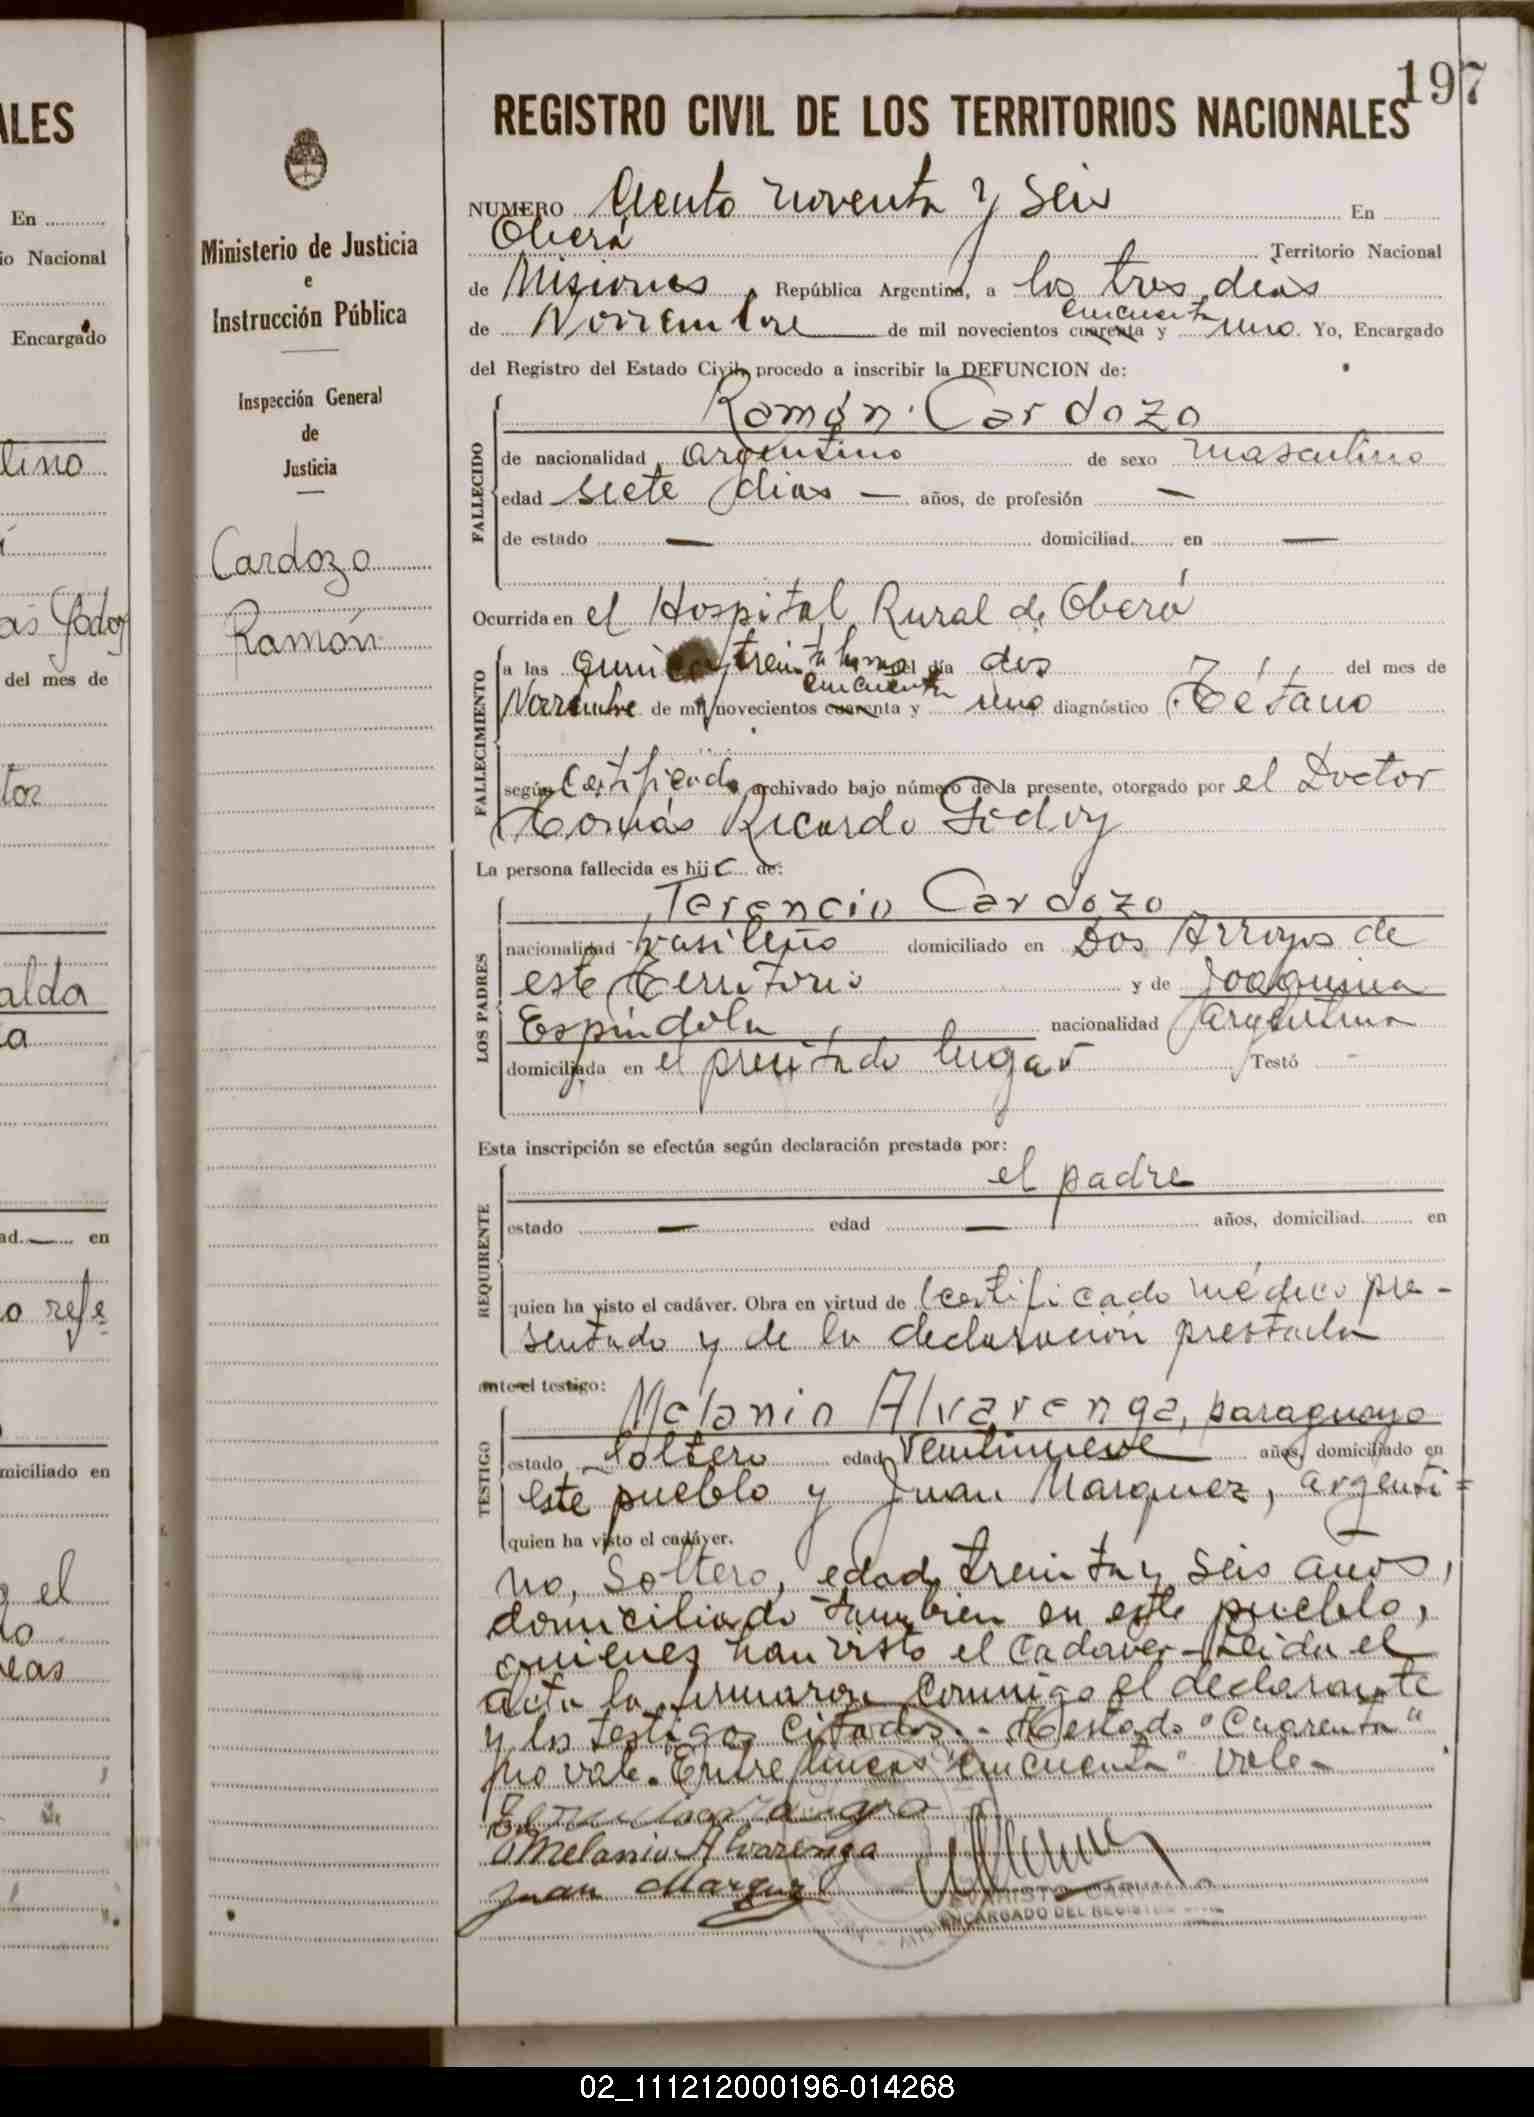 197
ALES
REGISTRO CIVIL DE LOS TERRITORIOS NACIONALES
En
io Nacional
Encargado
lino
as Godoy
del mes de
tor
alda
a
ad. — en
o refe
miciliado en
el
lo
eas
Ministerio de Justicia
e
Instrucción Pública
Inspección General
de
Justicia
Cardozo
Ramón
NUMERO Ciento noventa y seis En
Oberá Territorio Nacional
de Misiones, República Argentina, a los tres dias
cincuenta
de Noviembre de mil novecientos cuarenta y uno. Yo, Encargado
del Registro del Estado Civil, procedo a inscribir la DEFUNCION de:
FALLECIDO
Ramón Cardozo
de nacionalidad argentino de sexo masculino
edad siete dias — años, de profesión —
de estado — domiciliad en —
Ocurrida en el Hospital Rural de Oberá
FALLECIMIENTO
a las treinta horas del día dos del mes de
cincuenta
Noviembre de mil novecientos cuarenta y uno diagnóstico Tétano
según certificado archivado bajo número de la presente, otorgado por el Doctor
Tomás Ricardo Godoy
La persona fallecida es hijo de:
LOS PADRES
Terencio Cardozo
nacionalidad brasileño domiciliado en Dos Arroyos de
este Territorio y de Joaquina
Espíndola nacionalidad argentina
domiciliada en el precitado lugar Testó -
Esta inscripción se efectúa según declaración prestada por:
REQUIRENTE
el padre
estado — edad — años, domiciliad en
quien ha visto el cadáver. Obra en virtud de certificado médico pre-
sentado y de la declaración prestada
ante el testigo:
TESTIGO
Melanio Alvarenga, paraguayo
estado soltero edad veintinueve años, domiciliado en
este pueblo y Juan Marquez, argenti=
quien ha visto el cadáver.
no, soltero, edad treinta y seis años,
domiciliado tambien en este pueblo,
quienes han visto el cadaver - Leida el
acta la firmaron conmigo el declarante
y los testigos citados. - Testado "Cuarenta"
no vale. Entre lineas "cincuenta" vale -
Melanio Alvarenga
Juan Marquez
ENCARGADO DEL REGISTRO
02_111212000196-014268